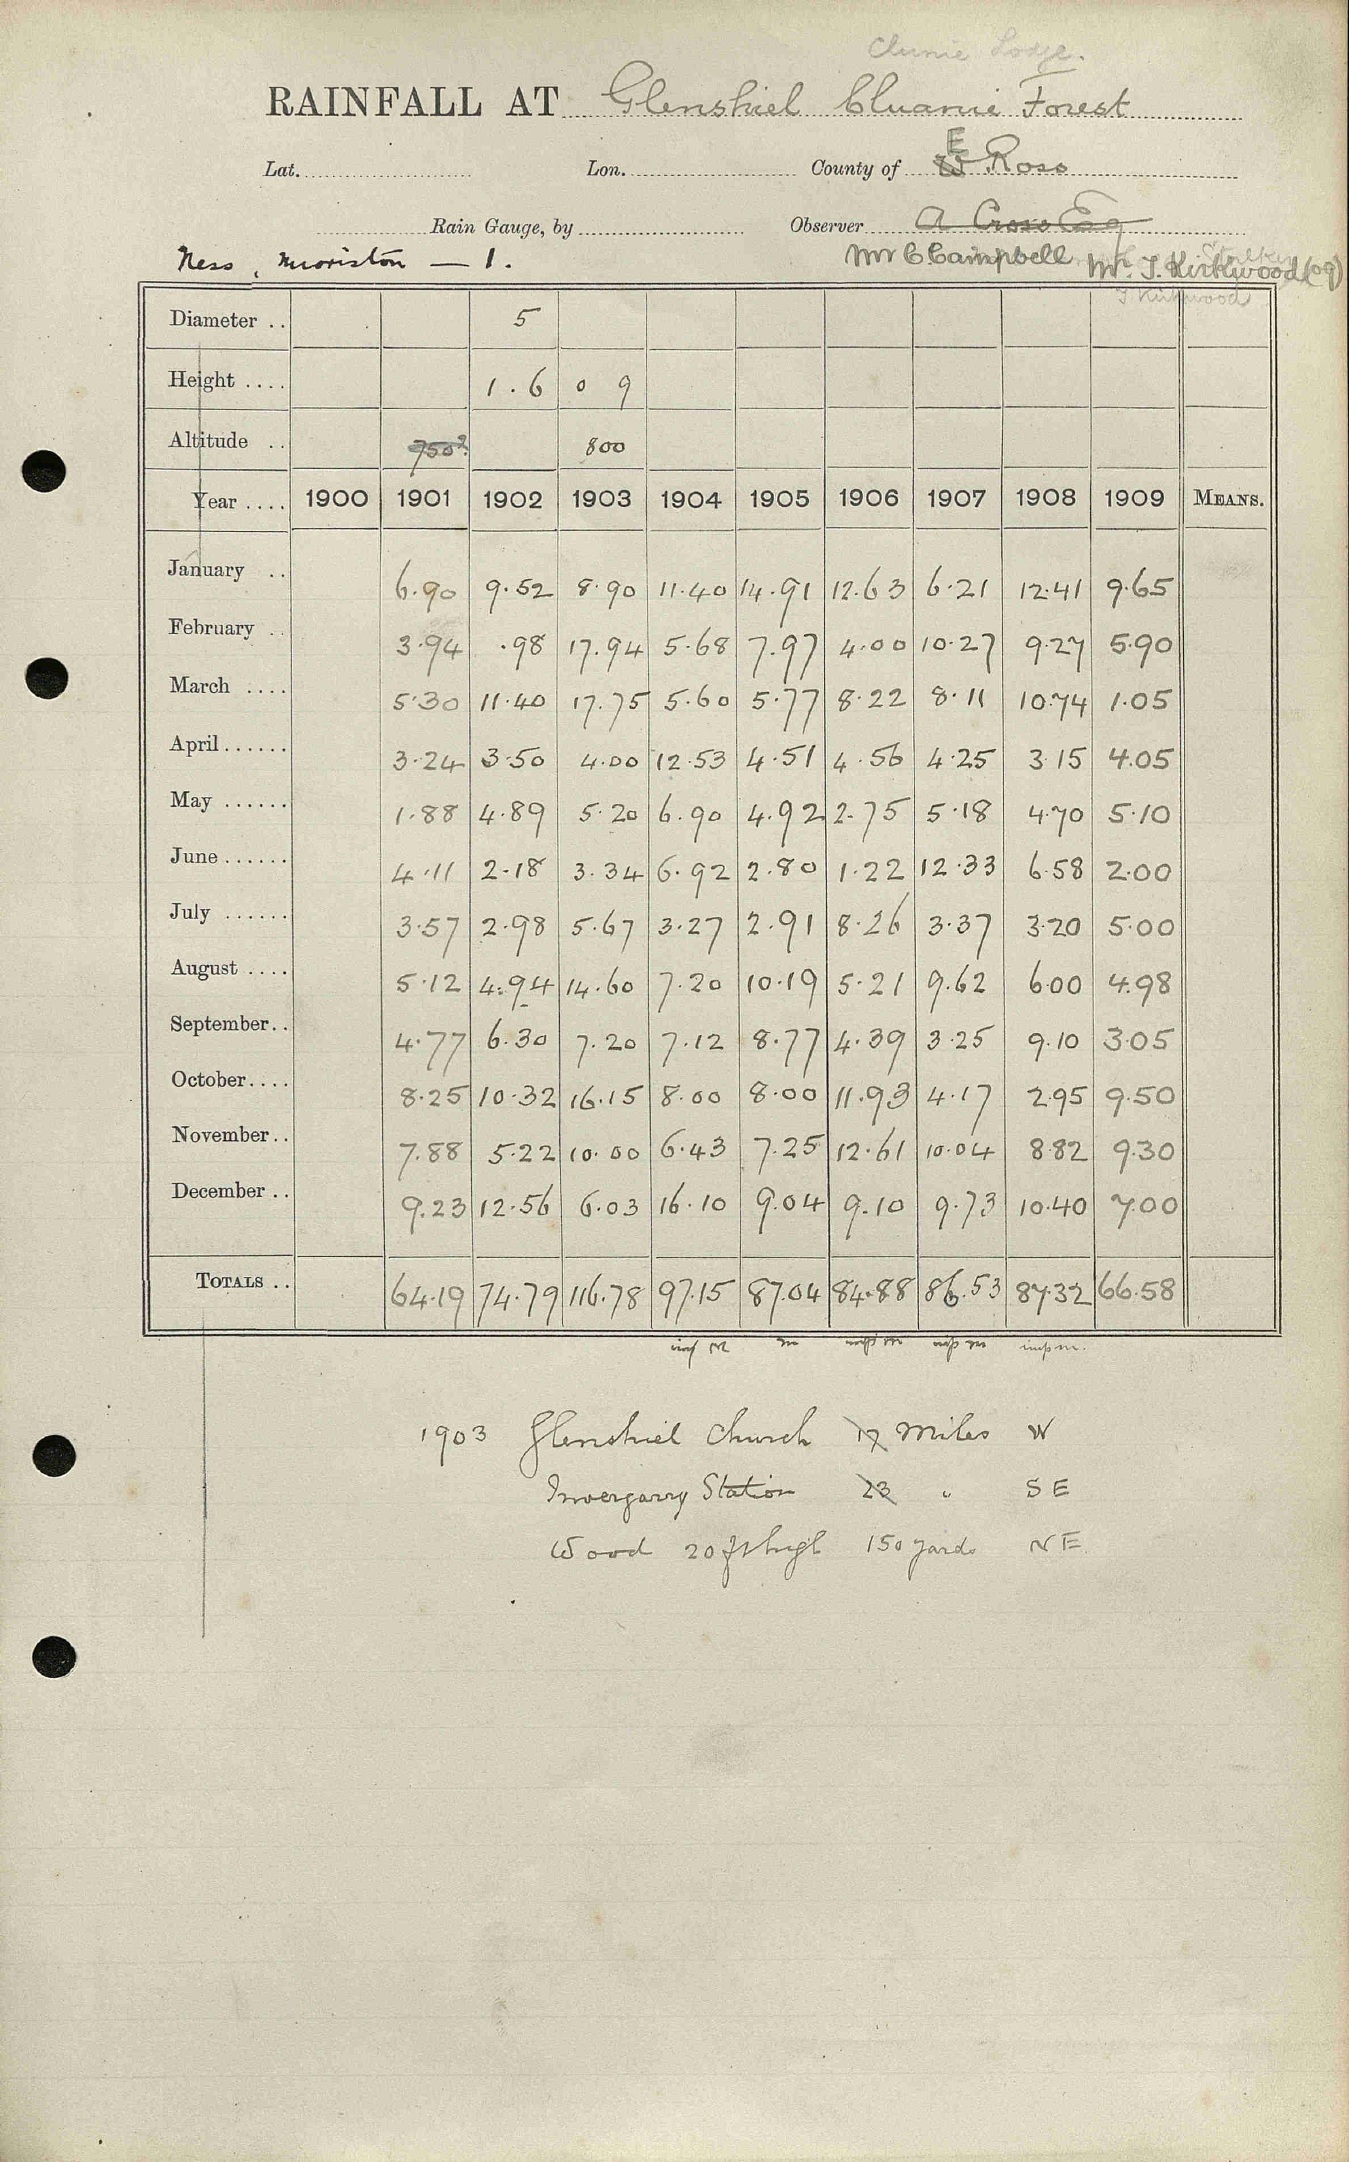 Clunie Lodge.
RAINFALL AT Glenshiel Cluanie Forest
Lat. Lon. County of E W Ross
Rain Gauge, by Observer A Cross Esq
Ness, Moriston — 1. Mr C. Campbell Mr. J. Kirkwood (09)
J Kirkwood
Diameter .. 5
Height .... 1.6 0 9
Altitude .. 750? 800
Year .... 1900 1901 1902 1903 1904 1905 1906 1907 1908 1909 MEANS.
January .. 6.90 9.52 8.90 11.40 14.91 12.63 6.21 12.41 9.65
February .. 3.94 .98 17.94 5.68 7.97 4.00 10.27 9.27 5.90
March .... 5.30 11.40 17.75 5.60 5.77 8.22 8.11 10.74 1.05
April ...... 3.24 3.50 4.00 12.53 4.51 4.56 4.25 3.15 4.05
May ...... 1.88 4.89 5.20 6.90 4.92 2.75 5.18 4.70 5.10
June ...... 4.11 2.18 3.34 6.92 2.80 1.22 12.33 6.58 2.00
July ...... 3.57 2.98 5.67 3.27 2.91 8.26 3.37 3.20 5.00
August .... 5.12 4.94 14.60 7.20 10.19 5.21 9.62 6.00 4.98
September.. 4.77 6.30 7.20 7.12 8.77 4.39 3.25 9.10 3.05
October.... 8.25 10.32 16.15 8.00 8.00 11.93 4.17 2.95 9.50
November.. 7.88 5.22 10.00 6.43 7.25 12.61 10.04 8.82 9.30
December .. 9.23 12.56 6.03 16.10 9.04 9.10 9.73 10.40 7.00
TOTALS .. 64.19 74.79 116.78 97.15 87.04 84.88 86.53 87.32 66.58
1903 Glenshiel Church 17 Miles W
Invergarry Station 23 " S E
Wood 20 ft high 150 yards N E